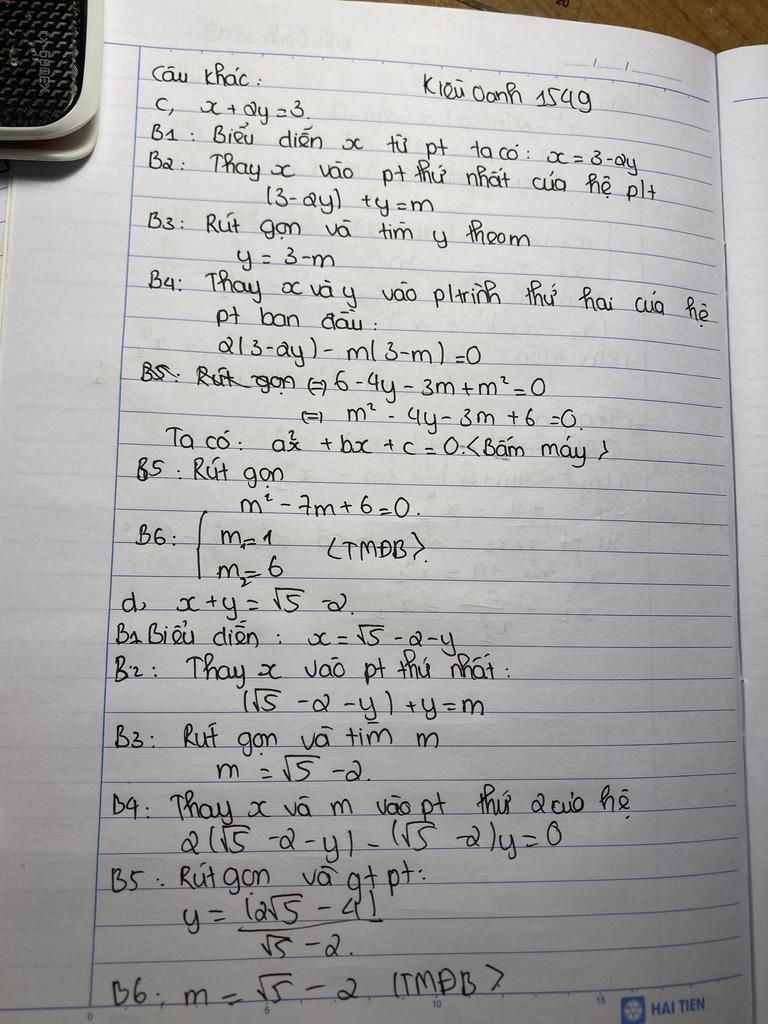 Câu khác:
Kiều Oanh 1549
c, x + 2y = 3.
B1: Biểu diễn x từ pt ta có: x = 3-2y
B2: Thay x vào pt thứ nhất của hệ plt
(3-2y) + y = m
B3: Rút gọn và tìm y theo m
y = 3-m
B4: Thay x và y vào pltrình thứ hai của hệ
pt ban đầu:
2(3-2y) - m(3-m) = 0
B5: Rút gọn (=) 6 - 4y - 3m + m² = 0
(=) m² - 4y - 3m + 6 = 0.
Ta có: ax² + bx + c = 0. <Bấm máy>
B5: Rút gọn
m² - 7m + 6 = 0.
B6: { m₁ = 1 <TMĐB>.
m₂ = 6
d, x + y = √5 - 2.
B1 Biểu diễn: x = √5 - 2 - y
B2: Thay x vào pt thứ nhất:
(√5 - 2 - y) + y = m
B3: Rút gọn và tìm m
m = √5 - 2.
B4: Thay x và m vào pt thứ 2 của hệ
2(√5 - 2 - y) - (√5 - 2)y = 0
B5: Rút gọn và gt pt:
y = (2√5 - 4)
√5 - 2.
B6: m = √5 - 2 (TMĐB>
0 5 10 15
HAI TIEN